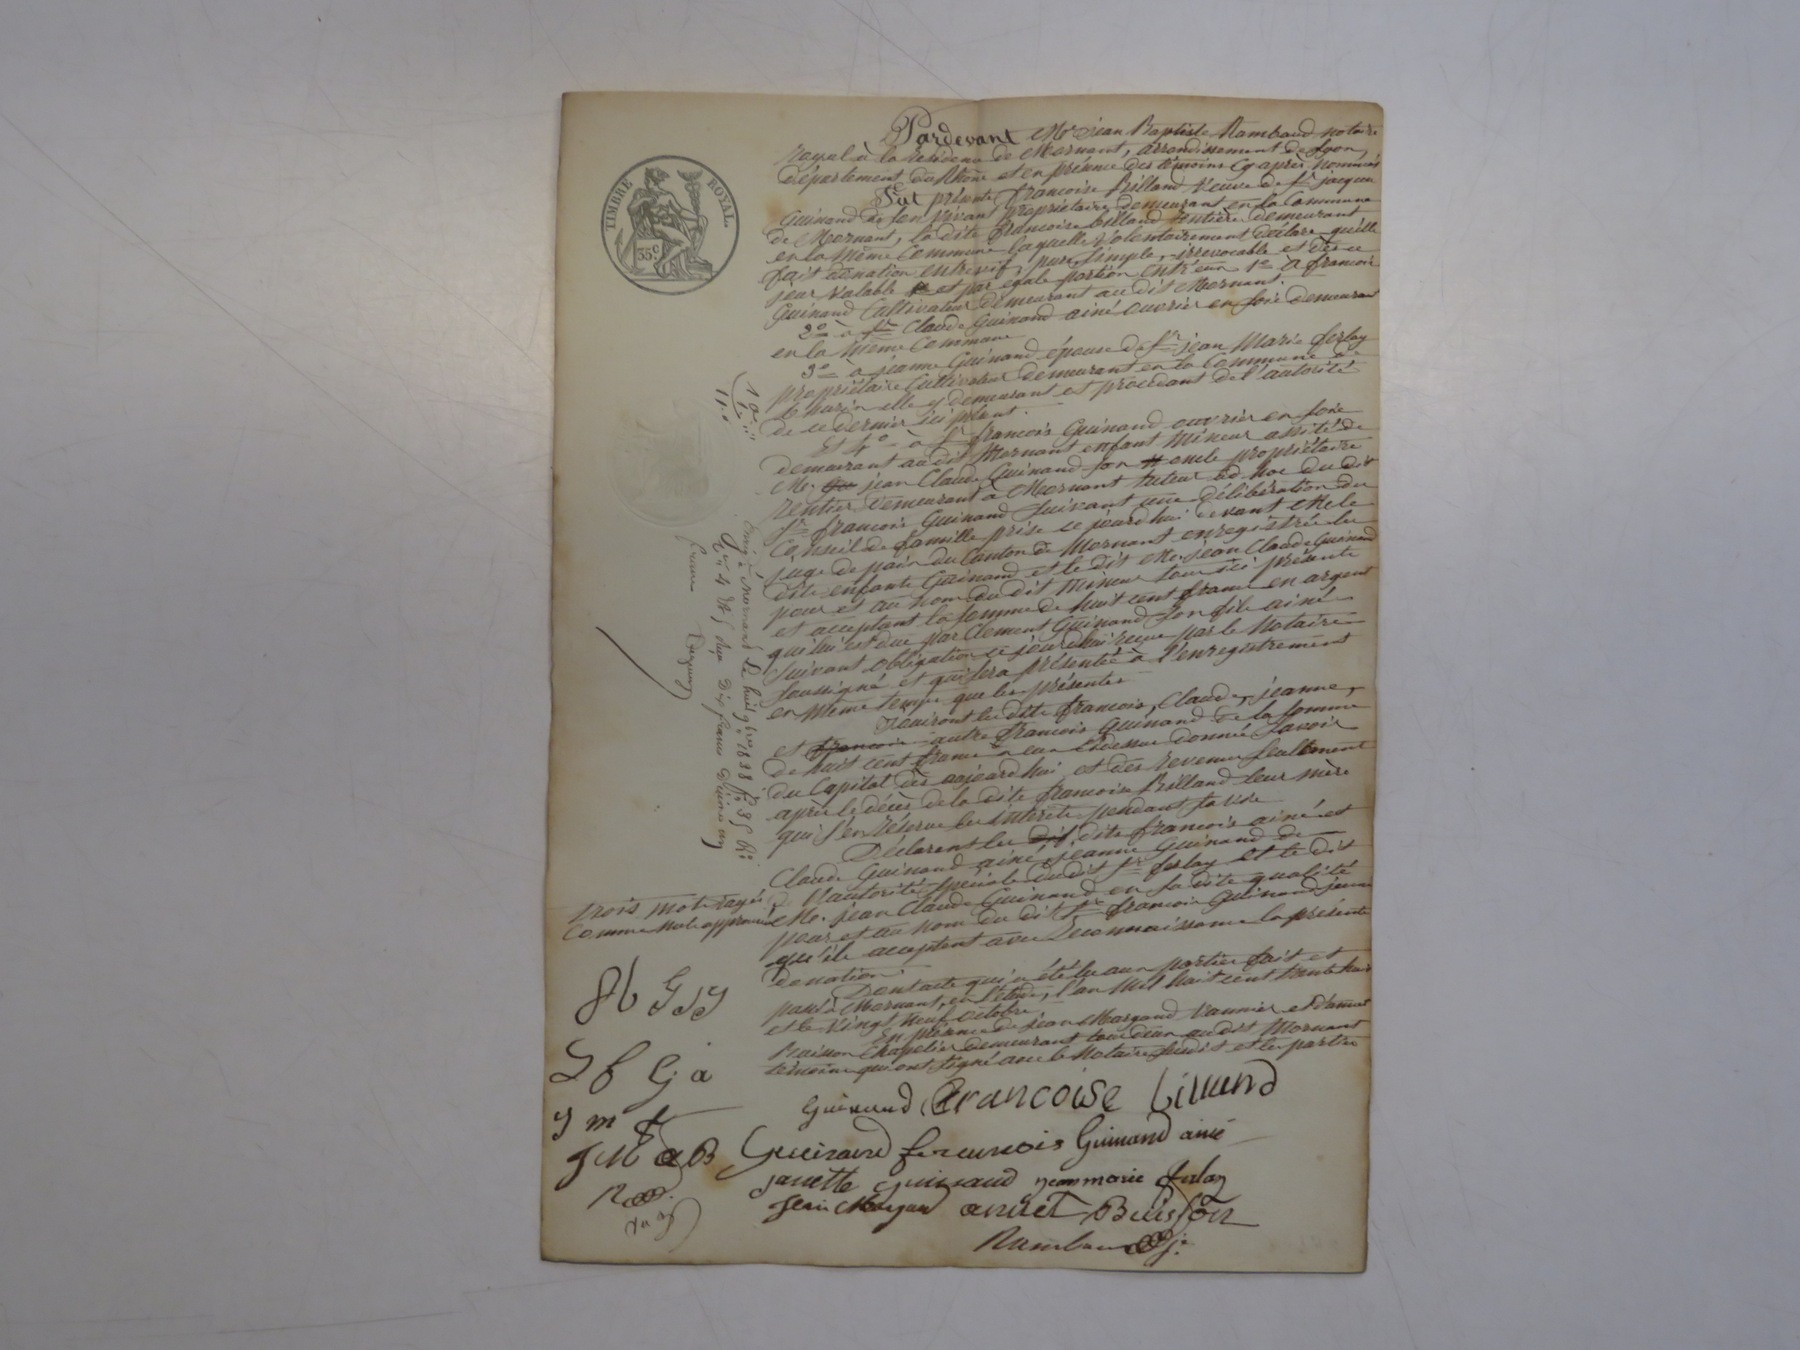 TIMBRE ROYAL
35c.
Pardevant Me jean Baptiste Rambaud notaire
royal à la résidence de Mornant, arrondissement de Lyon,
département du Rhône et en présence des témoins cy après nommés
Fut présente françoise Billand Veuve de Sr jacques
Guinand de son vivant propriétaire demeurant en la Commune
de Mornant, la dite françoise billand rentière demeurant
en la même Commune laquelle volontairement déclare qu'elle
fait donation entrevif, pure, simple, irrévocable et dès ce
jour valable et par egale portion entr'eux 1o à francois
Guinand Cultivateur demeurant au dit Mornant.
2o à Sr Claude Guinand ainé ouvrier en soie demeurant
en la même Commune
3o à jeanne Guinand épouse de Sr jean Marie ferlay
propriétaire Cultivateur demeurant en la Commune de
elle y demeurant et procédant de l'autorité
de ce dernier ici présent.
Et 4o à Sr francois Guinand ouvrier en soie
demeurant au dit Mornant enfant mineur assisté de
Me. jean Claude Guinand son oncle propriétaire
rentier demeurant à Mornant tuteur ad hoc du dit
Sr francois Guinand suivant une délibération du
Conseil de famille prise ce jourd'hui devant Mr le
juge de paix du Canton de Mornant enregistrée les
dits enfants Guinand et le dit Me. jean Claude Guinand
pour et au nom du dit mineur tous ici présents
et acceptant la somme de huit cent francs en argent
qui lui est due par Clement Guinand son fils ainé
suivant obligation ce jourd'hui reçue par le Notaire
soussigné et qui sera présentée à l'enregistrement
en même temps que les présentes
Jouiront les dits francois, Claude, jeanne,
et francois autre francois Guinand de la somme
de huit cent francs à eux cidessus donnée savoir
du Capital dès aujourd'hui et des revenus seulement
après le décès de la dite francoise Billand leur mère
qui s'en réserve les intérêts pendant sa vie
Déclarent les dits francois ainé et
Claude Guinand ainé, jeanne Guinand de
l'autorité spéciale du dit Sr ferlay et le dit
Me. jean Claude Guinand en sa dite qualité
pour et au nom du dit Sr francois Guinand jeune
qu'ils acceptent avec reconnaissance la présente
donation.
Dont acte qui a été lu aux parties fait et
passé à Mornant, en l'étude, l'an mil huit cent trente huit
et le vingt neuf octobre
En présence de jean Margand Vannier et d'annet
Buisson Chapelier demeurant tous deux au dit Mornant
témoins qui ont signé avec le Notaire susdit et les parties
Enrgé à Mornant le huit 9bre 1838 fo 35 Ro
dix francs
Trois mots rayés
Comme nuls approuvés
J f G a
j m f
J M a B
R
Guinand Francoise billand
Guinand francois Guinand ainé
janette guinand jean marie ferlay
Jean Margand annet Buisson
Rambaud